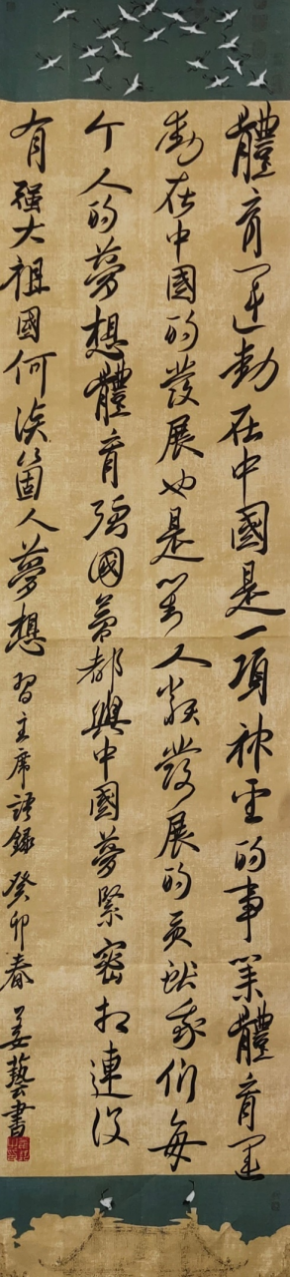 體育運動在中國是一項神聖的事業體育運
動在中國的發展也是對人類發展的貢獻我們每
个人的夢想體育強國夢都與中國夢緊密相連沒
有强大祖國何談箇人夢想習主席語錄癸卯春姜藝書